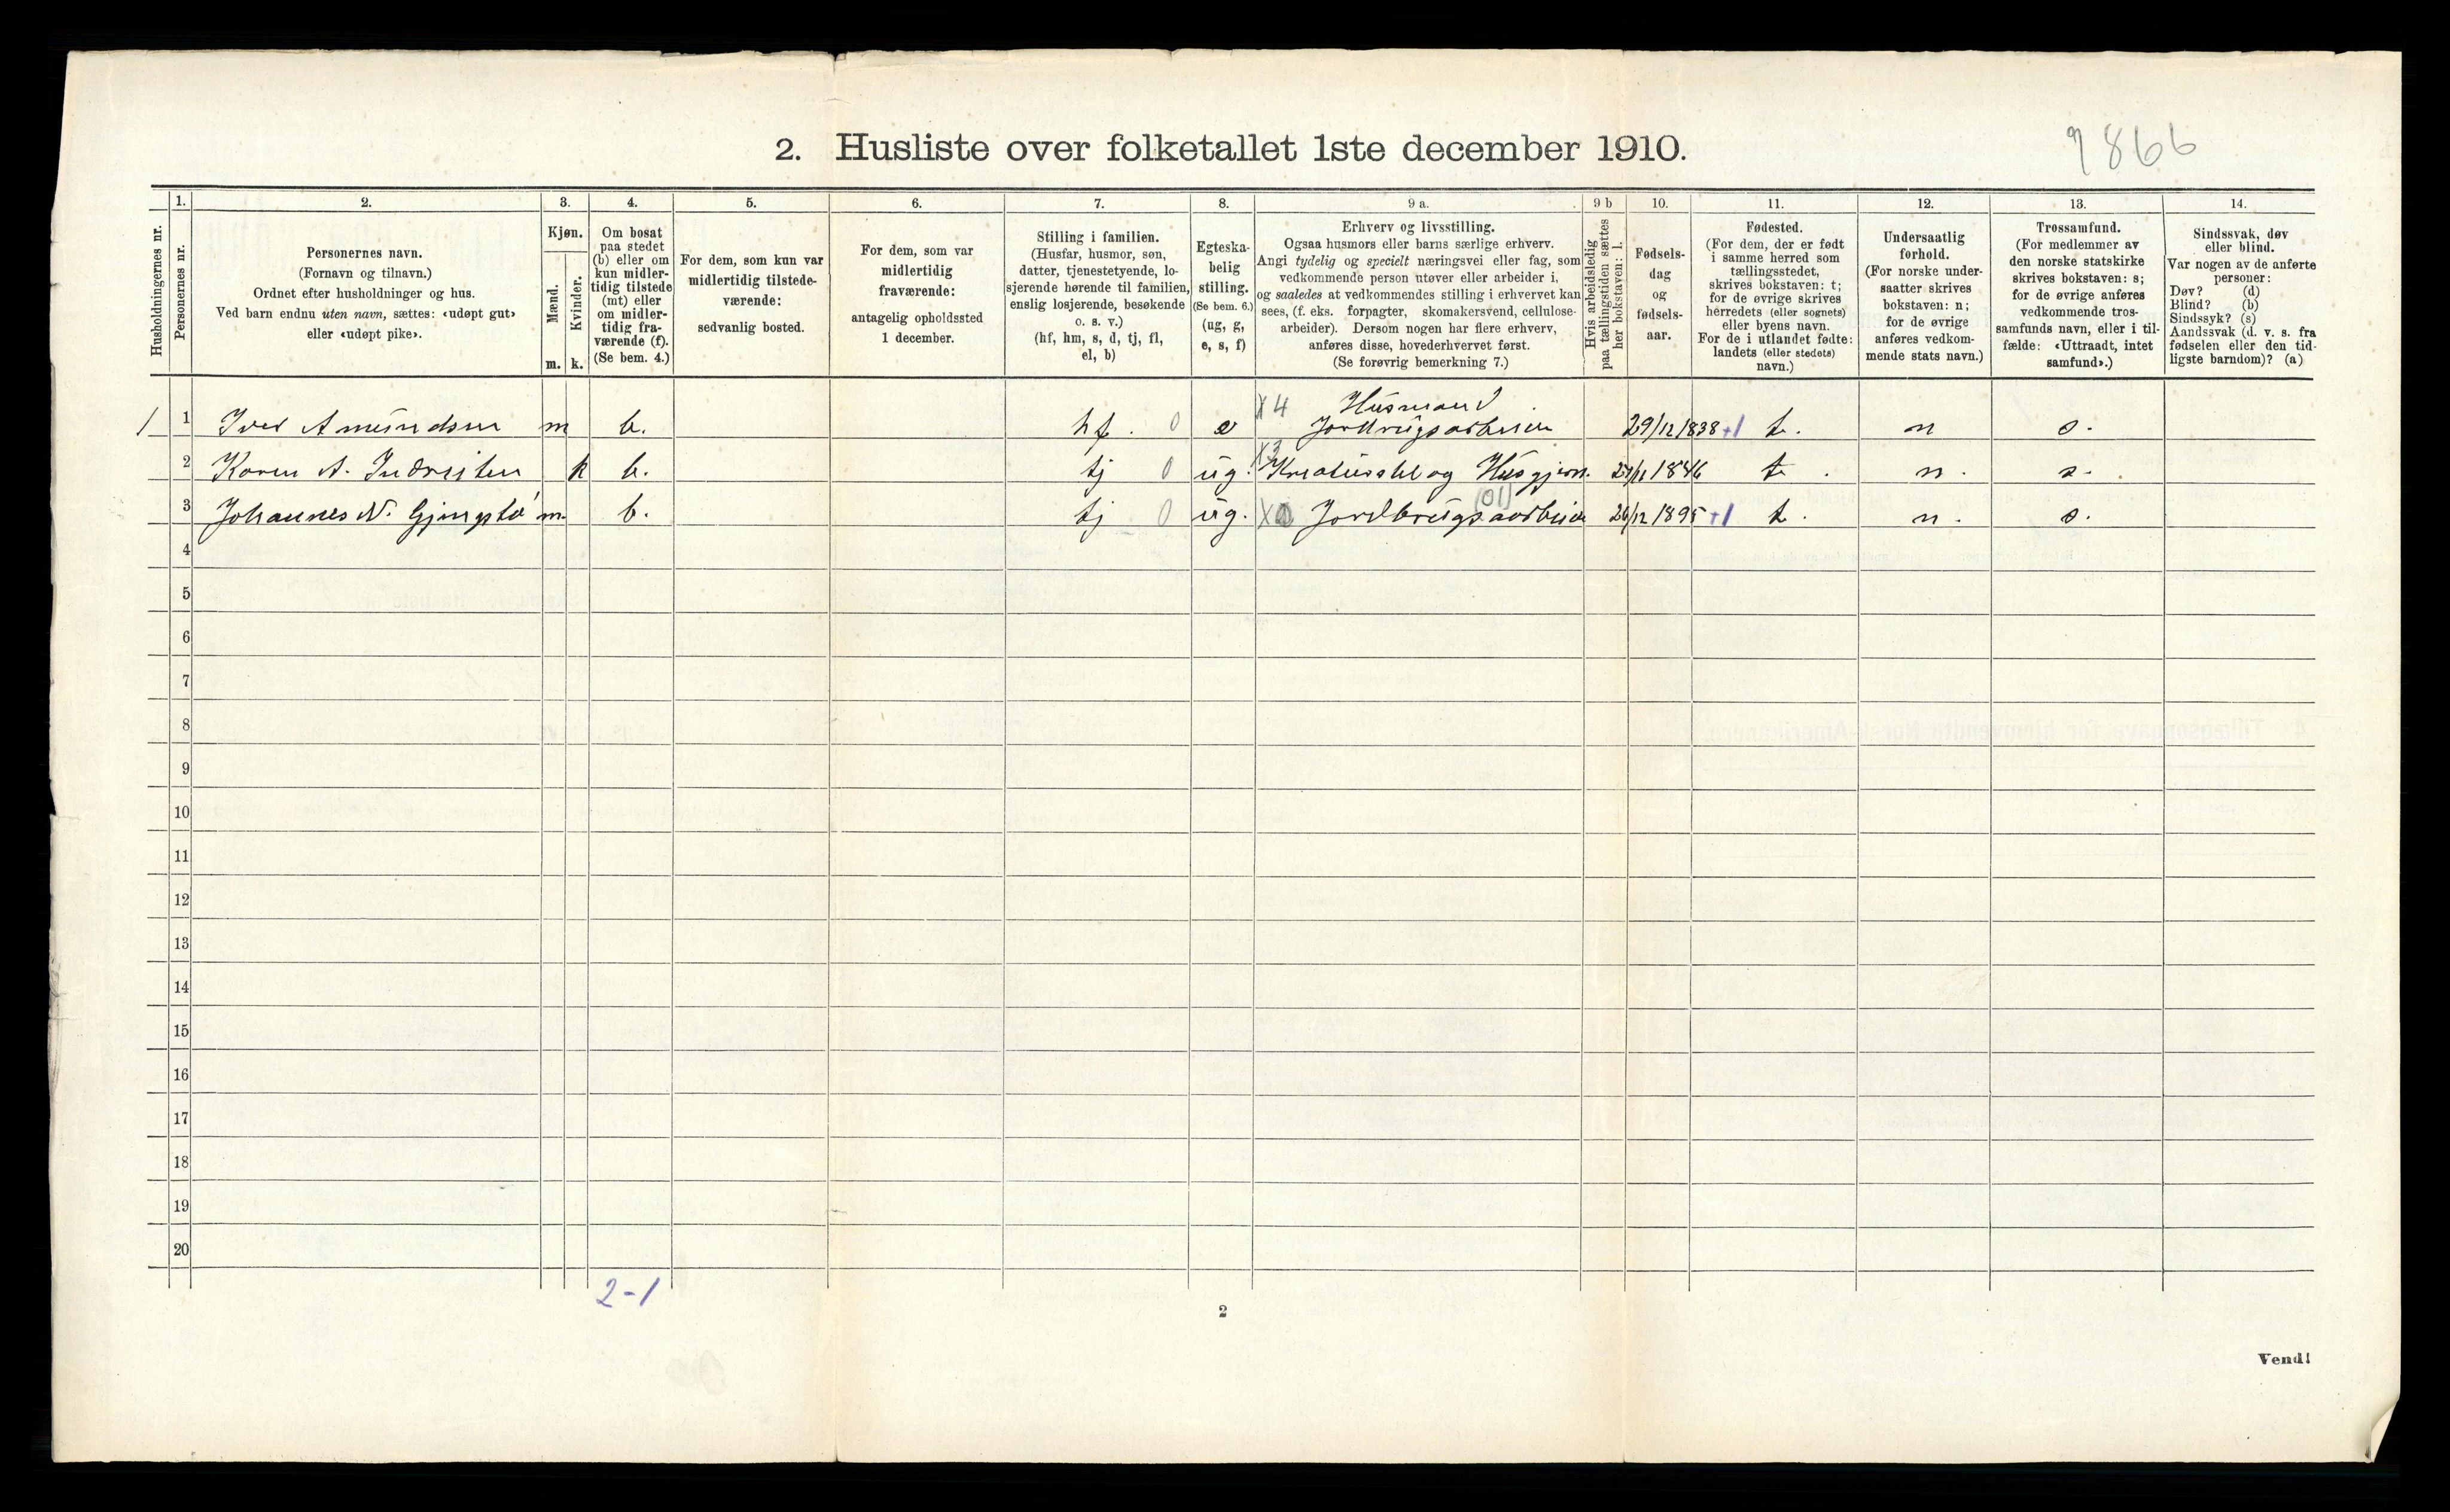 2. Husliste over folketallet 1ste december 1910.
9866
Husholdningernes nr.
1.
Personernes nr.
2.
Personernes navn.
(Fornavn og tilnavn.)
Ordnet efter husholdninger og hus.
Ved barn endnu uten navn, sættes: «udøpt gut»
eller «udøpt pike».
3.
Kjøn.
Mænd.
Kvinder.
m. k.
4.
Om bosat
paa stedet
(b) eller om
kun midler-
tidig tilstede
(mt) eller
om midler-
tidig fra-
værende (f).
(Se bem. 4.)
5.
For dem, som kun var
midlertidig tilstede-
værende:
sedvanlig bosted.
6.
For dem, som var
midlertidig
fraværende:
antagelig opholdssted
1 december.
7.
Stilling i familien.
(Husfar, husmor, søn,
datter, tjenestetyende, lo-
sjerende hørende til familien,
enslig losjerende, besøkende
o. s. v.)
(hf, hm, s, d, tj, fl,
el, b)
8.
Egteska-
belig
stilling.
(Se bem. 6.)
(ug, g,
e, s, f)
9 a.
Erhverv og livsstilling.
Ogsaa husmors eller barns særlige erhverv.
Angi tydelig og specielt næringsvei eller fag, som
vedkommende person utøver eller arbeider i,
og saaledes at vedkommendes stilling i erhvervet kan
sees, (f. eks. forpagter, skomakersvend, cellulose-
arbeider). Dersom nogen har flere erhverv,
anføres disse, hovederhvervet først.
(Se forøvrig bemerkning 7.)
9 b
Hvis arbeidsledig
paa tællingstiden sættes
her bokstaven: l.
10.
Fødsels-
dag
og
fødsels-
aar.
11.
Fødested.
(For dem, der er født
i samme herred som
tællingsstedet,
skrives bokstaven: t;
for de øvrige skrives
herredets (eller sognets)
eller byens navn.
For de i utlandet fødte:
landets (eller stedets)
navn.)
12.
Undersaatlig
forhold.
(For norske under-
saatter skrives
bokstaven: n;
for de øvrige
anføres vedkom-
mende stats navn.)
13.
Trossamfund.
(For medlemmer av
den norske statskirke
skrives bokstaven: s;
for de øvrige anføres
vedkommende tros-
samfunds navn, eller i til-
fælde: «Uttraadt, intet
samfund».)
14.
Sindssvak, døv
eller blind.
Var nogen av de anførte
personer:
Døv? (d)
Blind? (b)
Sindssyk? (s)
Aandssvak (d. v. s. fra
fødselen eller den tid-
ligste barndom)? (a)
X 4 Husmand
1 1 Iver Amundsen m b. hf. 0 e Jordbrugsarbeider 29/12 1838 +1 t. n s.
2 Karen A. Indreiten k b. tj 0 ug. X3 Kreaturstel og Husgjern. 1846 t. n. s.
3 Johannes N. m. b. tj 0 ug. X0 Jordbrugsarbeider (01) 26/12 1895 +1 t. n. s.
4
5
6
7
8
9
10
11
12
13
14
15
16
17
18
19
20
2-1
2
Vend!